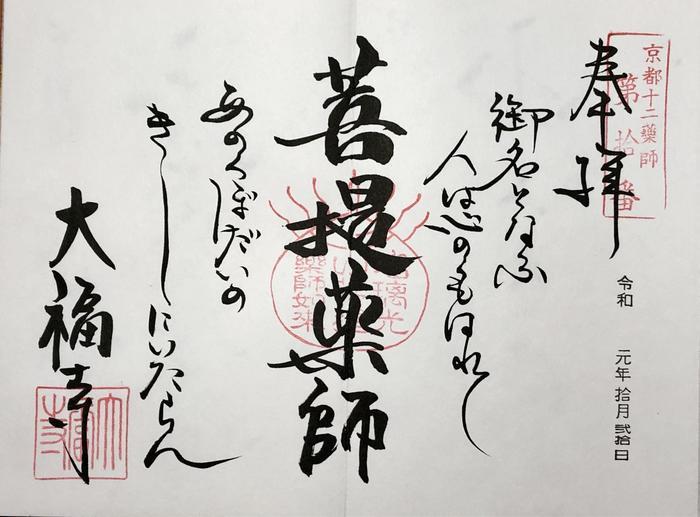 京都十二藥師
第拾番
奉拝
令和 元年 拾月 弐拾日
御名となふ
人は心のもはれし
菩提薬師
あのくぼだいの
きしにいたらん
大福寺
大福寺